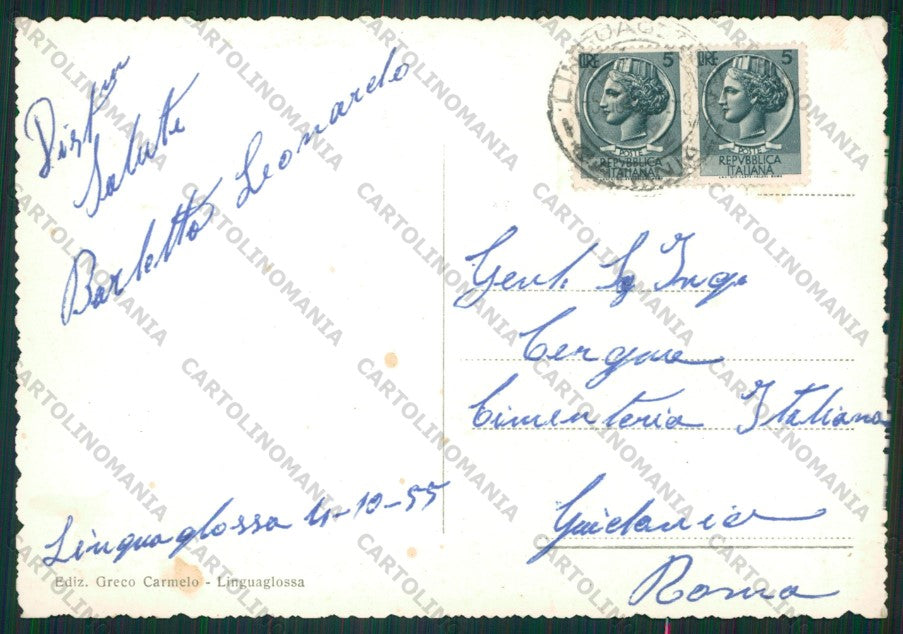 Dist.
Saluti
Barletta Leonardo
Linguaglossa 4-10-55
Ediz. Greco Carmelo - Linguaglossa
LIRE 5
POSTE
REPVBBLICA
ITALIANA
LIRE 5
POSTE
REPVBBLICA
ITALIANA
Gent. Sg Ing.
Cimenteria Italiana
Guidonia
Roma
CARTOLINOMANIA